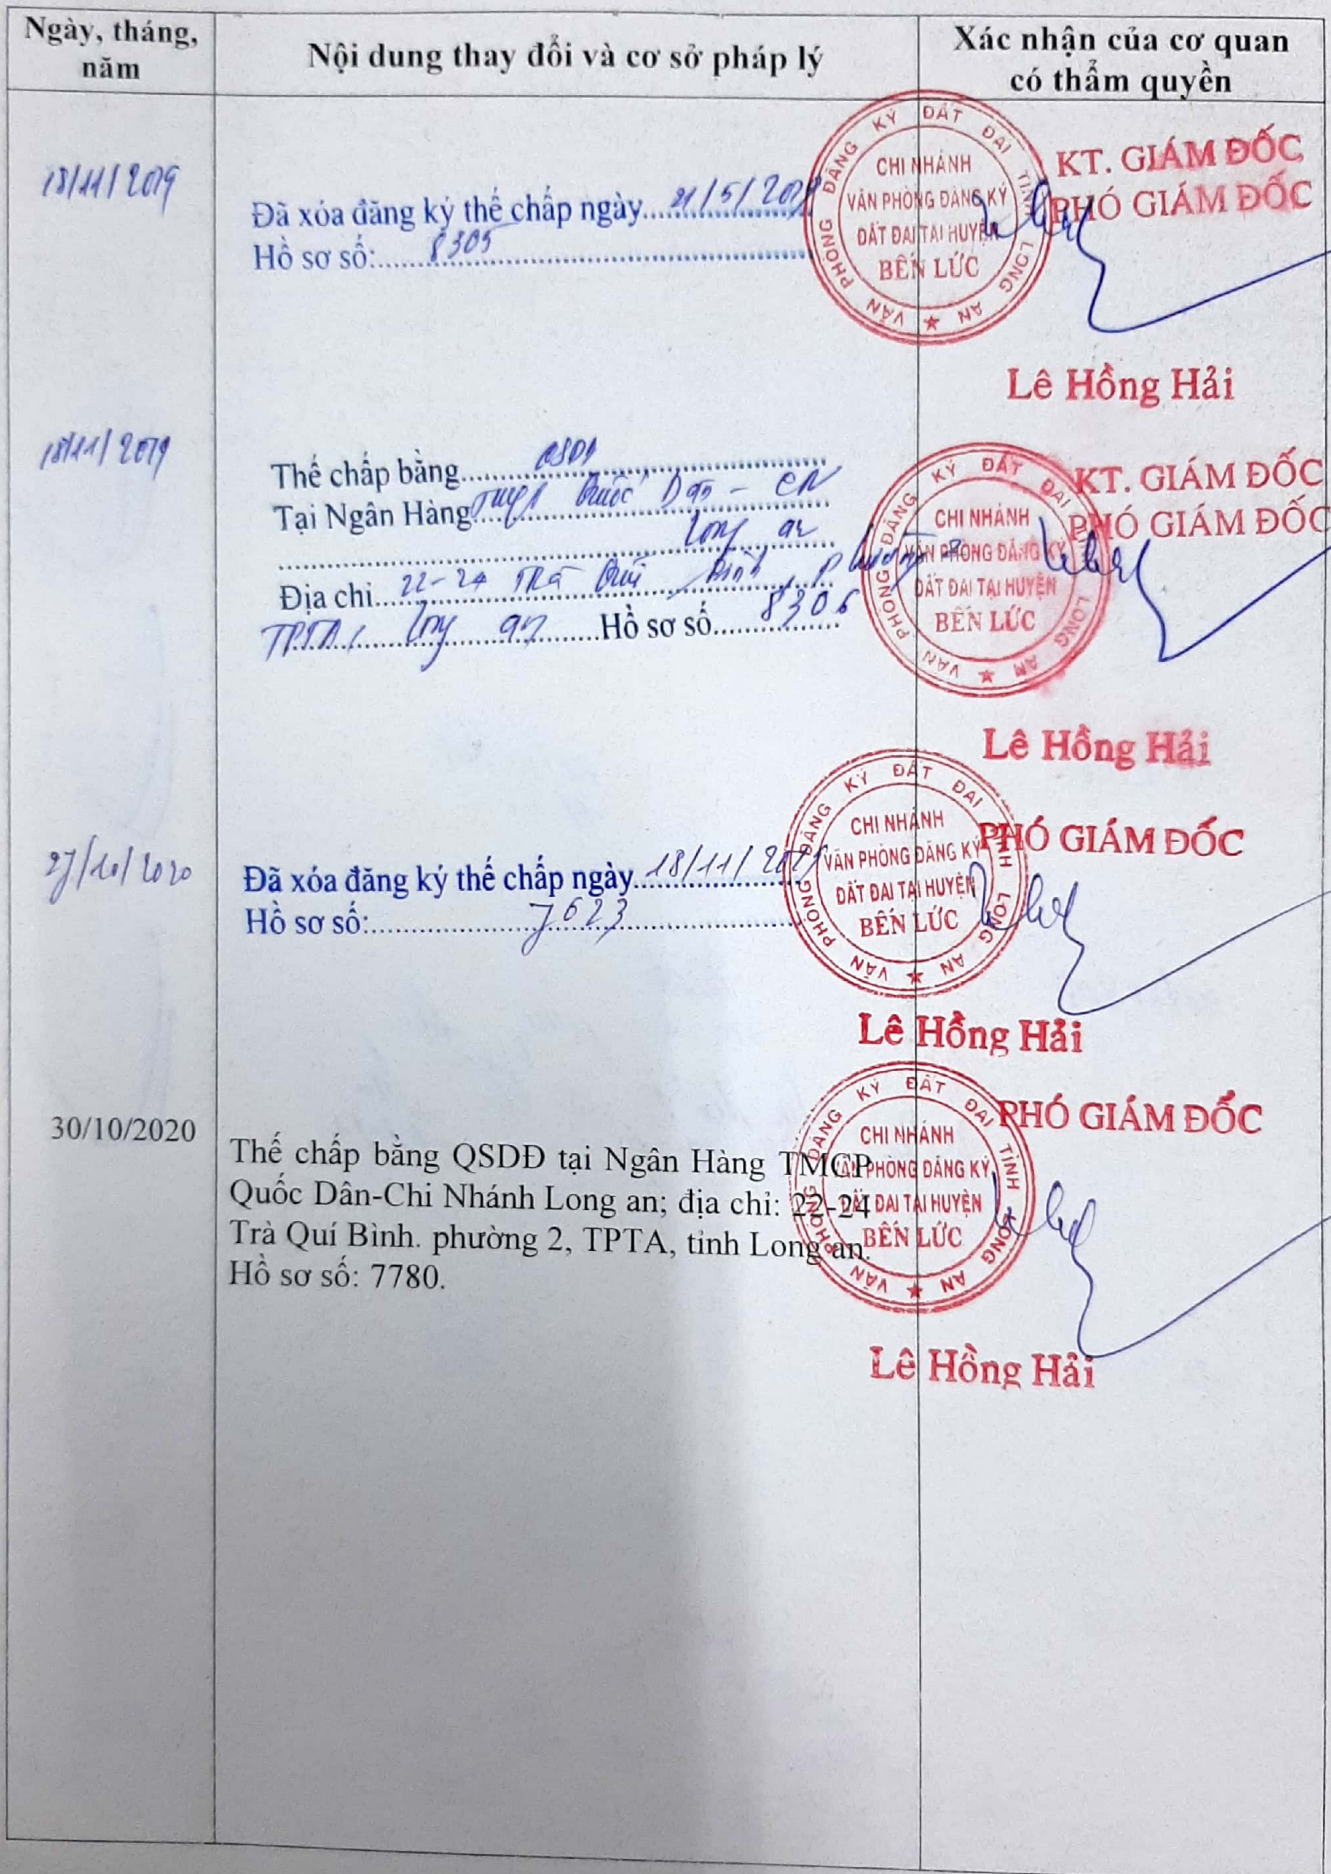 Ngày, tháng, năm
Nội dung thay đổi và cơ sở pháp lý
Xác nhận của cơ quan có thẩm quyền
18/11/2019
Đã xóa đăng ký thế chấp ngày 21/5/
Hồ sơ số: 8305
VĂN PHÒNG ĐĂNG KÝ ĐẤT ĐAI TỈNH LONG AN
CHI NHÁNH
VĂN PHÒNG ĐĂNG KÝ
ĐẤT ĐAI TẠI HUYỆN
BẾN LỨC
KT. GIÁM ĐỐC
PHÓ GIÁM ĐỐC
Lê Hồng Hải
18/11/2019
Thế chấp bằng QSDĐ
Tại Ngân Hàng Quốc Dân - CN
Long an
Địa chỉ 22-24 Trà Quí Bình, phường 2
TPTA, Long an Hồ sơ số 8306
VĂN PHÒNG ĐĂNG KÝ ĐẤT ĐAI TỈNH LONG AN
CHI NHÁNH
VĂN PHÒNG ĐĂNG KÝ
ĐẤT ĐAI TẠI HUYỆN
BẾN LỨC
KT. GIÁM ĐỐC
PHÓ GIÁM ĐỐC
Lê Hồng Hải
27/10/2020
Đã xóa đăng ký thế chấp ngày 18/11/
Hồ sơ số: 7623
VĂN PHÒNG ĐĂNG KÝ ĐẤT ĐAI TỈNH LONG AN
CHI NHÁNH
VĂN PHÒNG ĐĂNG KÝ
ĐẤT ĐAI TẠI HUYỆN
BẾN LỨC
PHÓ GIÁM ĐỐC
Lê Hồng Hải
30/10/2020
Thế chấp bằng QSDĐ tại Ngân Hàng TMCP
Quốc Dân-Chi Nhánh Long an; địa chỉ: 22-24
Trà Quí Bình. phường 2, TPTA, tỉnh Long an.
Hồ sơ số: 7780.
VĂN PHÒNG ĐĂNG KÝ ĐẤT ĐAI TỈNH LONG AN
CHI NHÁNH
VĂN PHÒNG ĐĂNG KÝ
ĐẤT ĐAI TẠI HUYỆN
BẾN LỨC
PHÓ GIÁM ĐỐC
Lê Hồng Hải